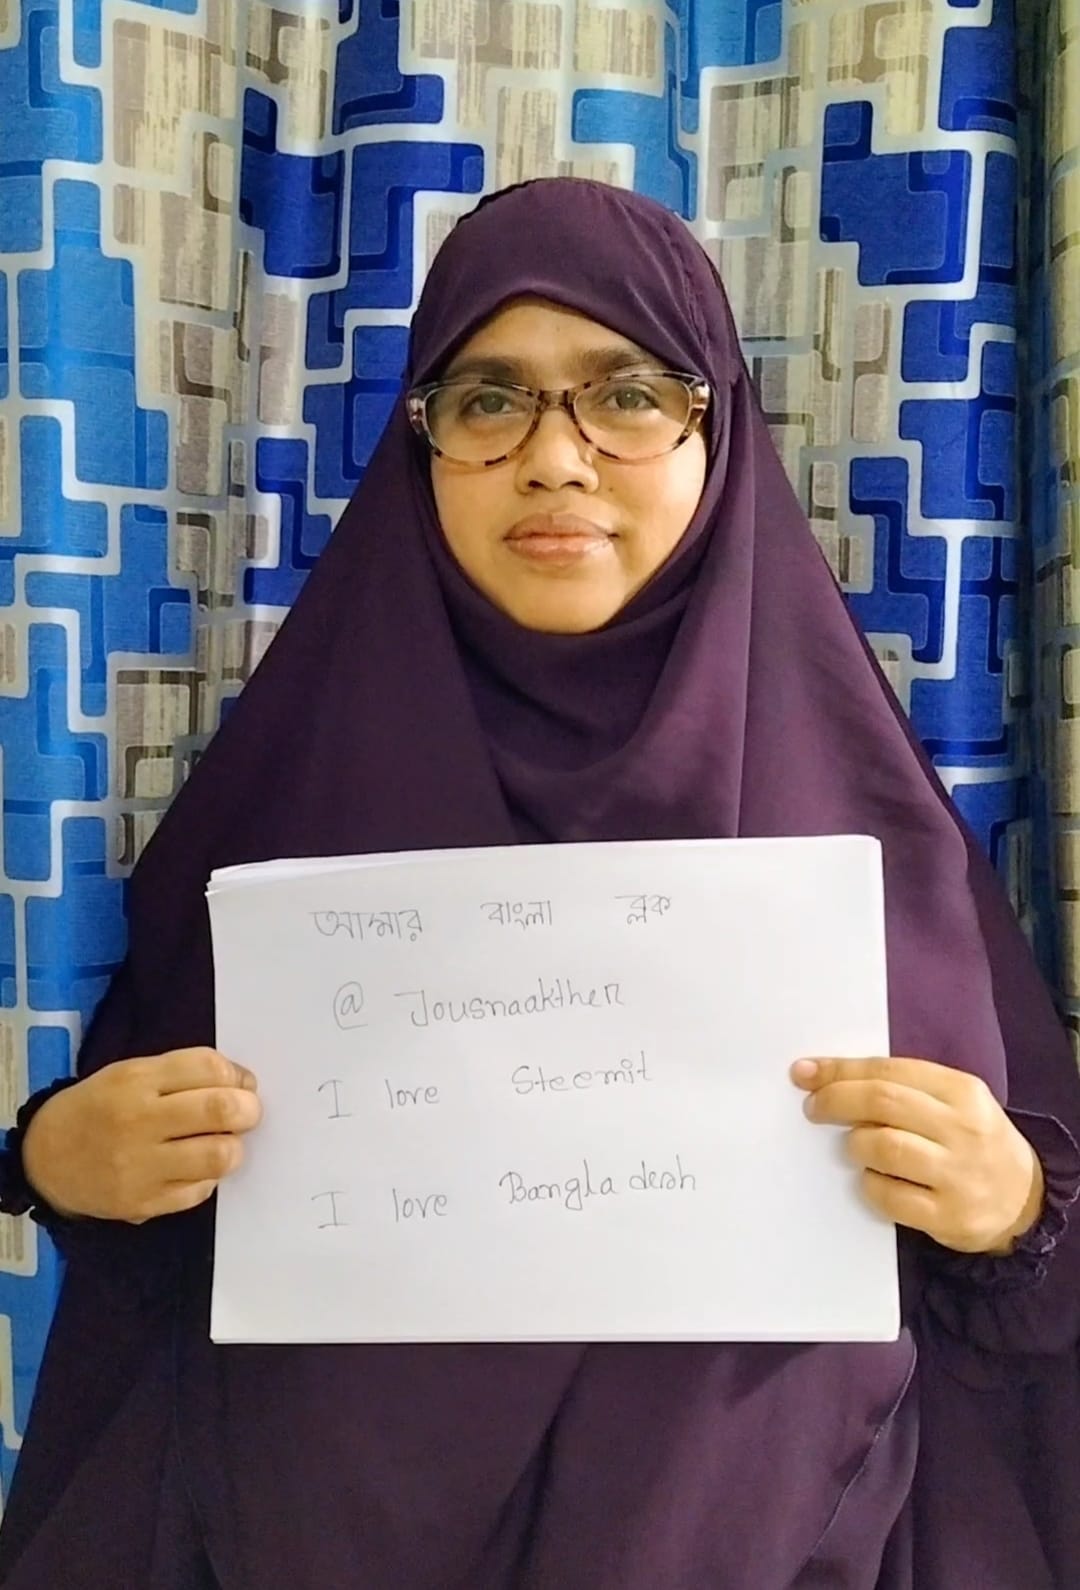 আমার বাংলা ব্লক
@ Jousnaakther
I love Steemit
I love Bangladesh